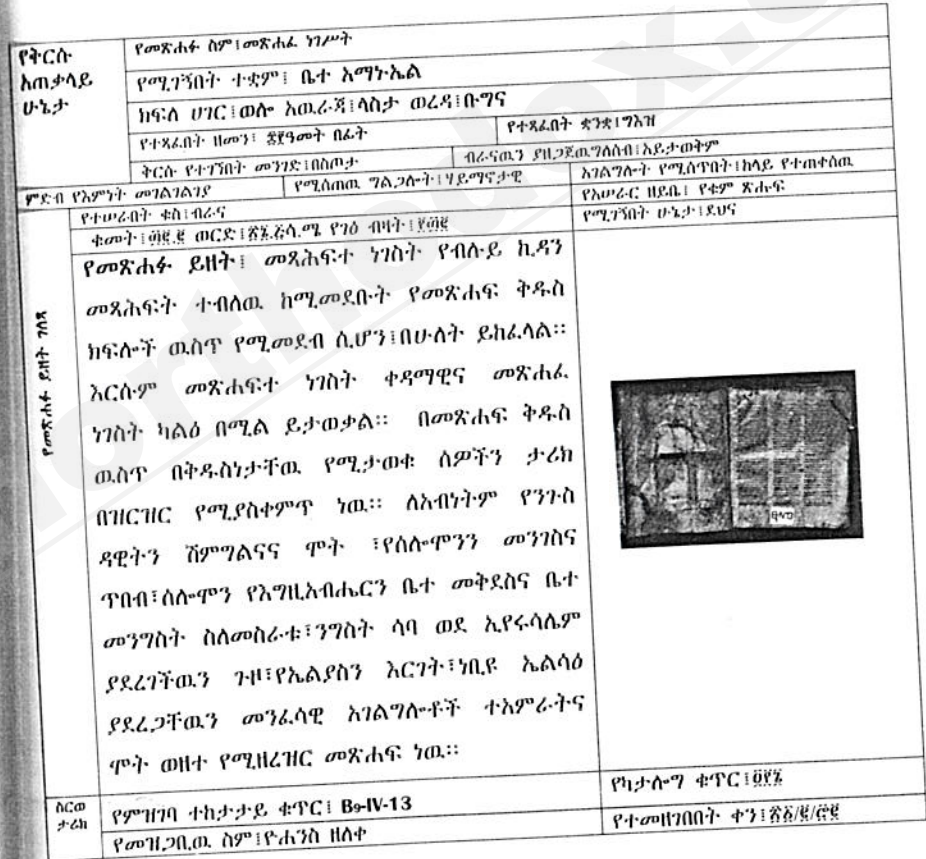 የቅርሱ አጠቃላይ ሁኔታ
የመጽሐፉ ስም፤መጽሐፈ ነገሥት
የሚገኝበት ተቋም፤ ቤተ አማኑኤል
ክፍለ ሀገር፤ወሎ አዉራጃ፤ላስታ ወረዳ፤ቡግና
የተጻፈበት ዘመን፤ ዓመት በፊት
የተጻፈበት ቋንቋ፤ግእዝ
ቅርሱ የተገኘበት መንገድ፤በስጦታ
ብራናዉን ያዘጋጀዉግለሰብ፤አይታወቅም
ምድብ የእምነት መገልገልገያ
የሚሰጠዉ ግልጋሎት፤ሃይማኖታዊ
አገልግሎት የሚሰጥበት፤ከላይ የተጠቀሰዉ
የተሠራበት ቁስ፤ብራና
የአሠራር ዘይቤ፤ የቁም ጽሑፍ
ቁመት፤ ወርድ፤ ሳ.ሜ የገፅ ብዛት፤
የሚገኝበት ሁኔታ፤ደህና
የመጽሐፉ ይዘት ገለጻ
የመጽሐፉ ይዘት፤ መጻሕፍተ ነገስት የብሉይ ኪዳን
መጻሕፍት ተብለዉ ከሚመደቡት የመጽሐፍ ቅዱስ
ክፍሎች ዉስጥ የሚመደብ ሲሆን፤በሁለት ይከፈላል።
እርሱም መጽሐፍተ ነገስት ቀዳማዊና መጽሐፈ
ነገስት ካልዕ በሚል ይታወቃል። በመጽሐፍ ቅዱስ
ዉስጥ በቅዱስነታቸዉ የሚታወቁ ሰዎችን ታሪክ
በዝርዝር የሚያስቀምጥ ነዉ። ለአብነትም የንጉስ
ዳዊትን ሽምግልናና ሞት ፣የሰሎሞንን መንገስና
ጥበብ፣ሰሎሞን የእግዚአብሔርን ቤተ መቅደስና ቤተ
መንግስት ስለመስራቱ፣ንግስት ሳባ ወደ ኢየሩሳሌም
ያደረገችዉን ጉዞ፣የኤልያስን እርገት፣ነቢዩ ኤልሳዕ
ያደረጋቸዉን መንፈሳዊ አገልግሎቶች ተአምራትና
ሞት ወዘተ የሚዘረዝር መጽሐፍ ነዉ።
ስርወ ታሪክ
የምዝገባ ተከታታይ ቁጥር፤ B9-IV-13
የካታሎግ ቁጥር፤
የመዝጋቢዉ ስም፤ዮሐንስ ዘለቀ
የተመዘገበበት ቀን፤
orthodox.